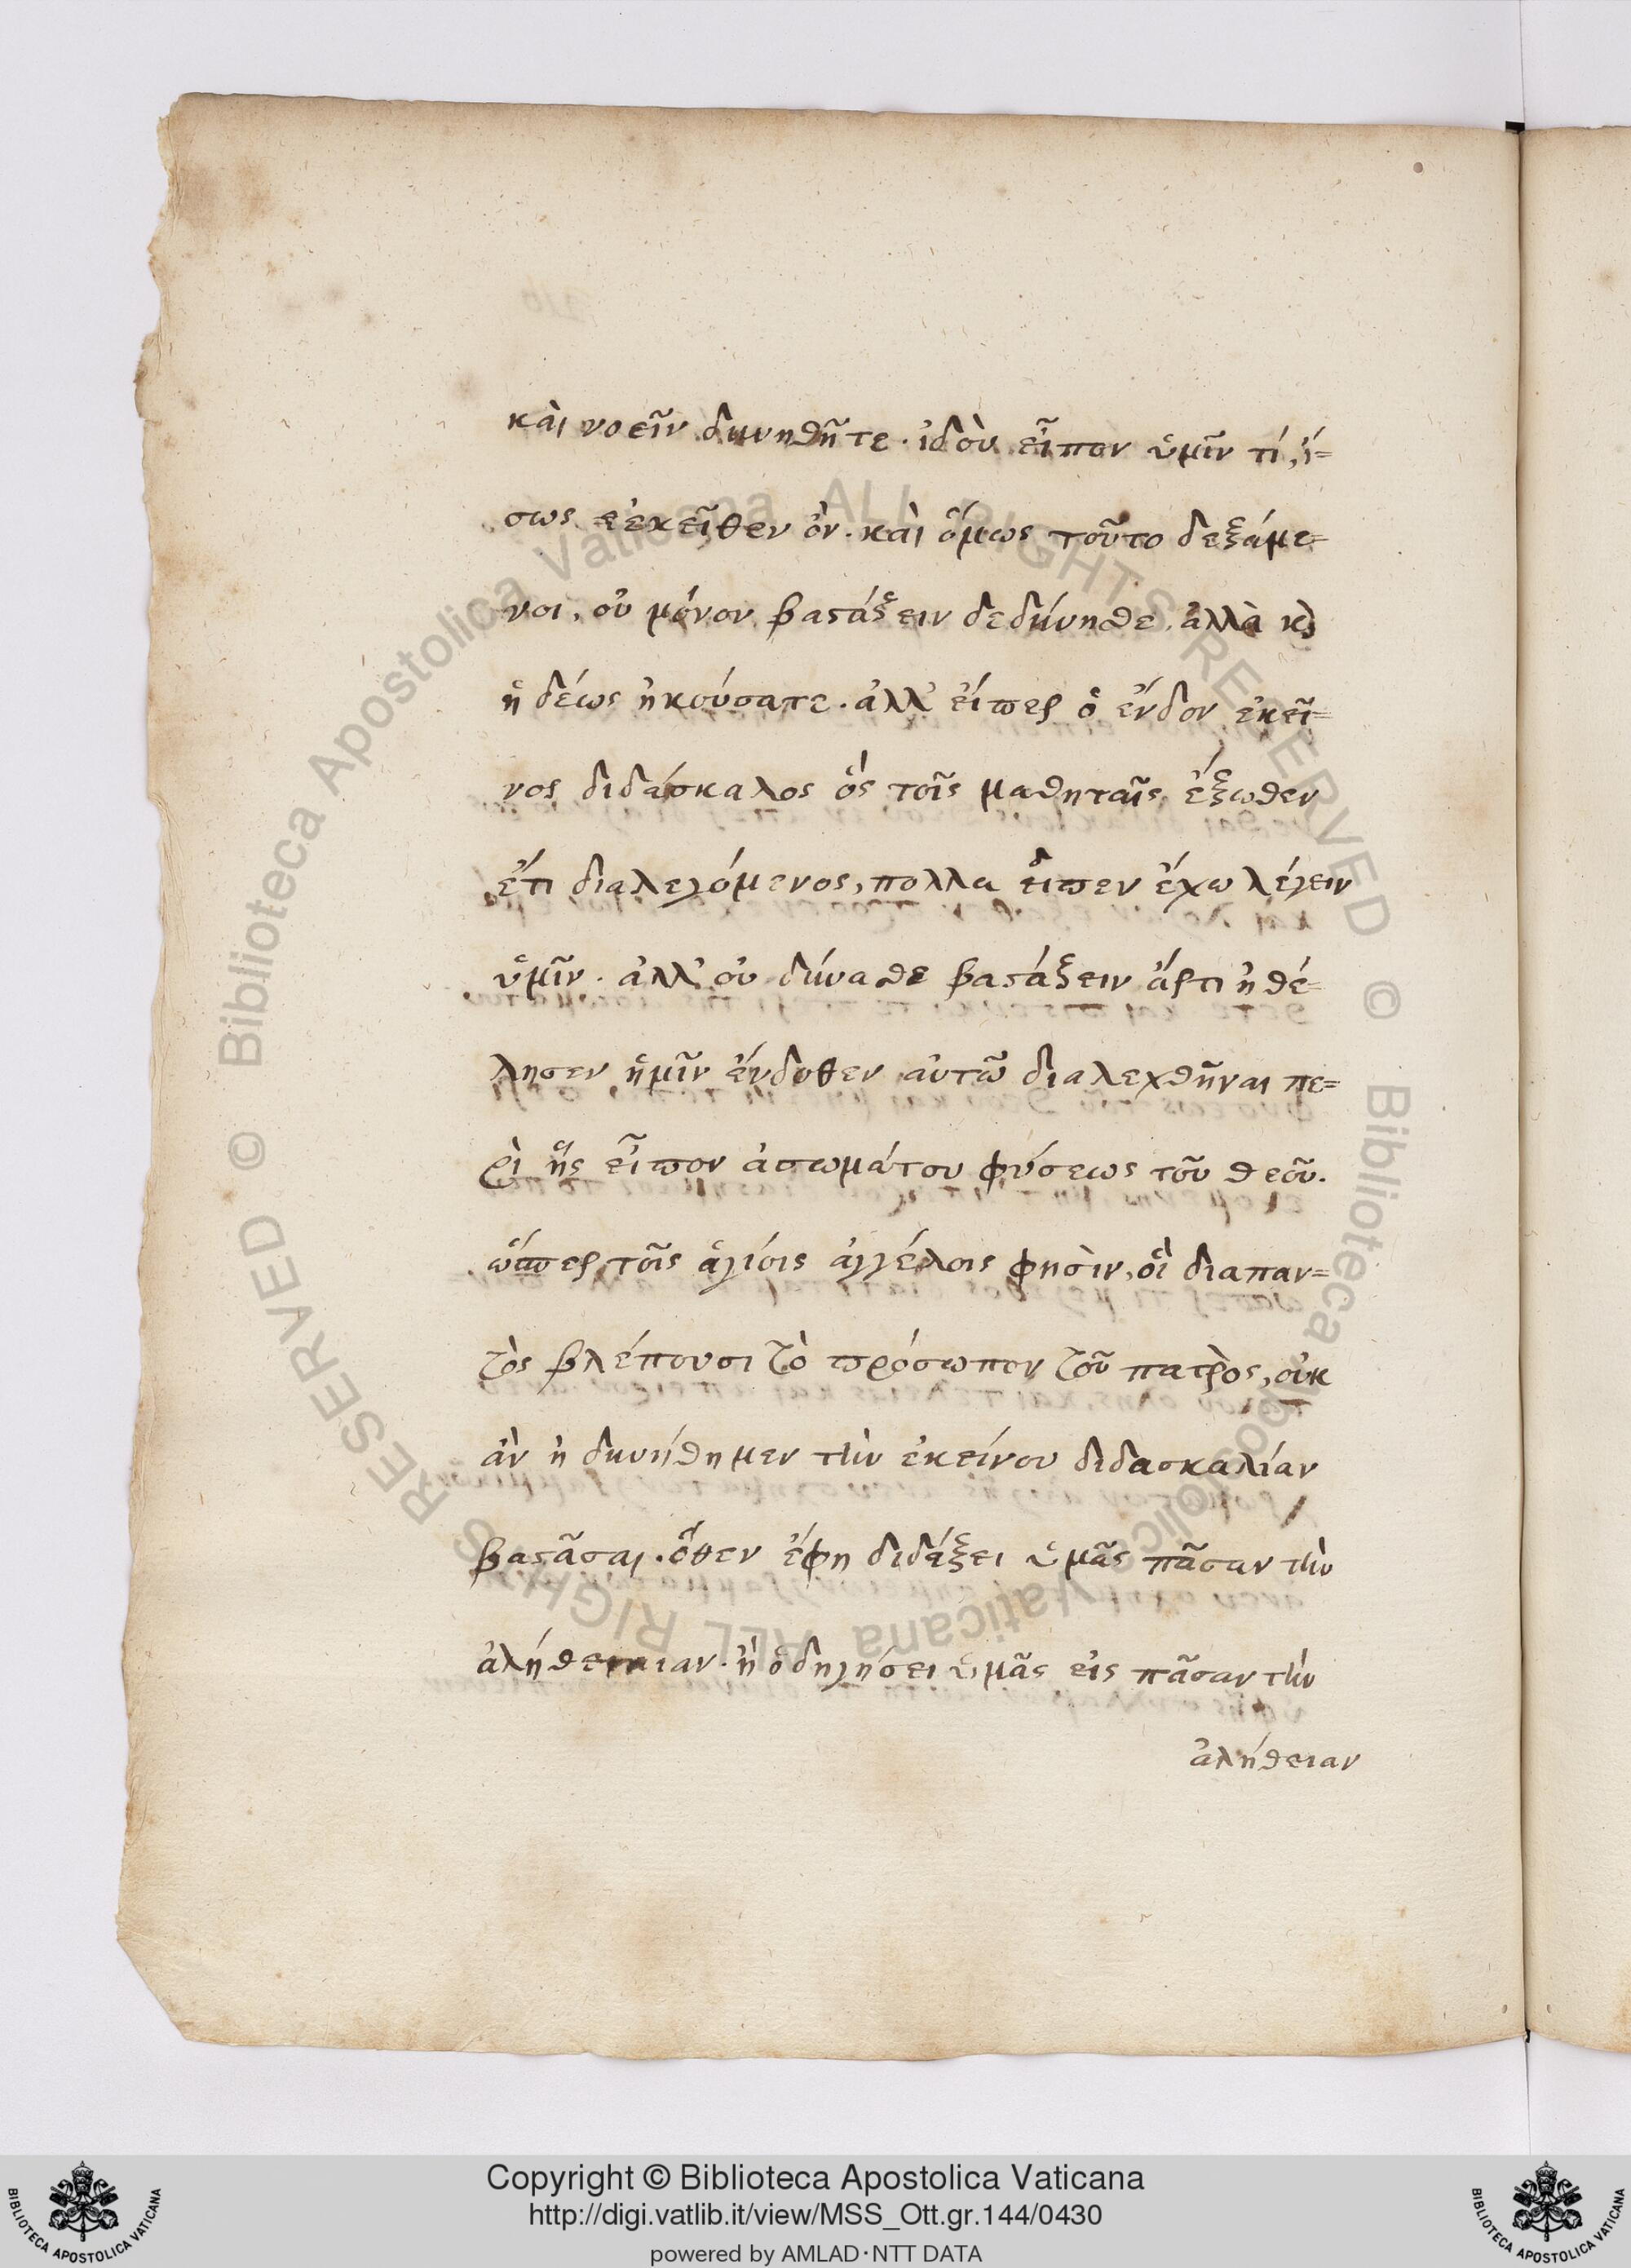 καὶ νοεῖν δυνηθῆτε. ἰδοὺ εἶπον ὑμῖν τί, ἴ=
σως ἐκεῖθεν ὂν. καὶ ὅμως τοῦτο δεξάμε=
νοι, οὐ μόνον βαστάξειν δεδύνησθε. ἀλλὰ κὶ
ἡδέως ἠκούσατε. ἀλλ' εἴπερ ὁ ἔνδον ἐκεῖ=
νος διδάσκαλος ὃς τοῖς μαθηταῖς ἔξωθεν
ἔτι διαλεγόμενος, πολλα εἶπεν ἔχω λέγειν
ὑμῖν. ἀλλ' οὐ δύνασθε βαστάξειν ἄρτι ἠθέ=
λησεν ἡμῖν ἔνδοθεν αὐτῶ διαλεχθῆναι πε=
ρὶ ἧς εἶπον ἀσωμάτου φύσεως τοῦ θεοῦ.
ὥσπερ τοῖς ἁγίοις ἀγγέλοις φησὶν, οἳ διαπαν=
τὸς βλέπουσι τὸ πρόσωπον τοῦ πατρὸς, οὐκ
ἂν ἠδυνήθημεν τὴν ἐκείνου διδασκαλίαν
βαστᾶσαι. ὅθεν ἔφη διδάξει ὑμᾶς πᾶσαν τὴν
ἀλήθειαν. ἢ ὁδηγήσει ὑμᾶς εἰς πᾶσαν τὴν
ἀλήθειαν
Copyright © Biblioteca Apostolica Vaticana
http://digi.vatlib.it/view/MSS_Ott.gr.144/0430
powered by AMLAD·NTT DATA
BIBLIOTECA APOSTOLICA VATICANA
BIBLIOTECA APOSTOLICA VATICANA
© Biblioteca Apostolica Vaticana ALL RIGHTS RESERVED
© Biblioteca Apostolica Vaticana ALL RIGHTS RESERVED